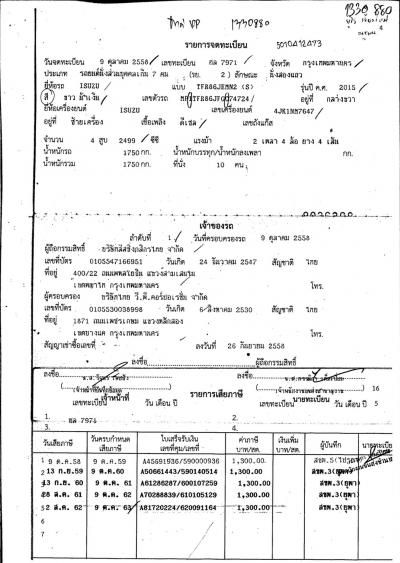 1330 880
ไมล์ VP 1330880
รายการจดทะเบียน 5010412473
วันจดทะเบียน 9 ตุลาคม 2558 เลขทะเบียน 7971 จังหวัด กรุงเทพมหานคร
ประเภท รถยนต์นั่งส่วนบุคคลเกิน 7 คน (รย. 2) ลักษณะ นั่งสองแถว
ยี่ห้อรถ ISUZU แบบ TFR86JHMN2 (S) รุ่นปี ค.ศ. 2015
สี ขาว น้ำเงิน เลขตัวรถ อยู่ที่ กลางขวา
ยี่ห้อเครื่องยนต์ ISUZU เลขเครื่องยนต์ 4JK1NM7647
อยู่ที่ ซ้ายเครื่อง เชื้อเพลิง ดีเซล เลขถังแก๊ส
จำนวน 4 สูบ 2499 ซีซี แรงม้า 2 เพลา 4 ล้อ ยาง 4 เส้น
น้ำหนักรถ 1750 กก. น้ำหนักบรรทุก/น้ำหนักลงเพลา กก.
น้ำหนักรวม 1750 กก. ที่นั่ง 10 คน
เจ้าของรถ
ลำดับที่ 1 วันที่ครอบครองรถ 9 ตุลาคม 2558
ผู้ถือกรรมสิทธิ์ จำกัด
เลขที่บัตร 0105547166951 วันเกิด 24 ธันวาคม 2547 สัญชาติ ไทย
ที่อยู่ 400/22 ถนนพหลโยธิน แขวงสามเสนใน
เขตพญาไท กรุงเทพมหานคร โทร.
ผู้ครอบครอง บริษัทไทย วี.พี.คอร์ปอเรชั่น จำกัด
เลขที่บัตร 0105530038998 วันเกิด 6 สิงหาคม 2530 สัญชาติ ไทย
ที่อยู่ 1871 ถนนเพชรเกษม แขวงหลักสอง
เขตบางแค กรุงเทพมหานคร โทร.
สัญญาเช่าซื้อเลขที่ ลงวันที่ 26 กันยายน 2558
ลงชื่อ ผู้ถือกรรมสิทธิ์
ลงชื่อ ลงชื่อ
เจ้าหน้าที่ รายการเสียภาษี นายทะเบียน 16
เลขทะเบียน วัน เดือน ปี เลขทะเบียน วัน เดือน ปี 5
1. 7971 2.
3. 4.
วันเสียภาษี วันครบกำหนดเสียภาษี ใบเสร็จรับเงิน เลขที่คุม/เลขที่ ค่าภาษี บาท/สต. เงินเพิ่ม บาท/สต. ผู้บันทึก นายทะเบียน
1 9 ต.ค.58 9 ต.ค.59 A45691936/590000936 1,300.00
2 13 ก.ย.59 9 ต.ค.60 A50661443/590140514 1,300.00
3 13 ก.ย. 60 9 ต.ค. 61 A61286287/600107259 1,300.00
4 28 ส.ค. 61 9 ต.ค. 62 A70288839/610105129 1,300.00
5 2 ส.ค. 62 9 ต.ค. 63 A81720224/620091164 1,300.00